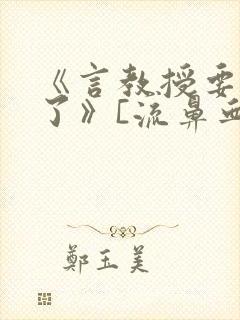 《言教授要
了》[流鼻
鄭玉美